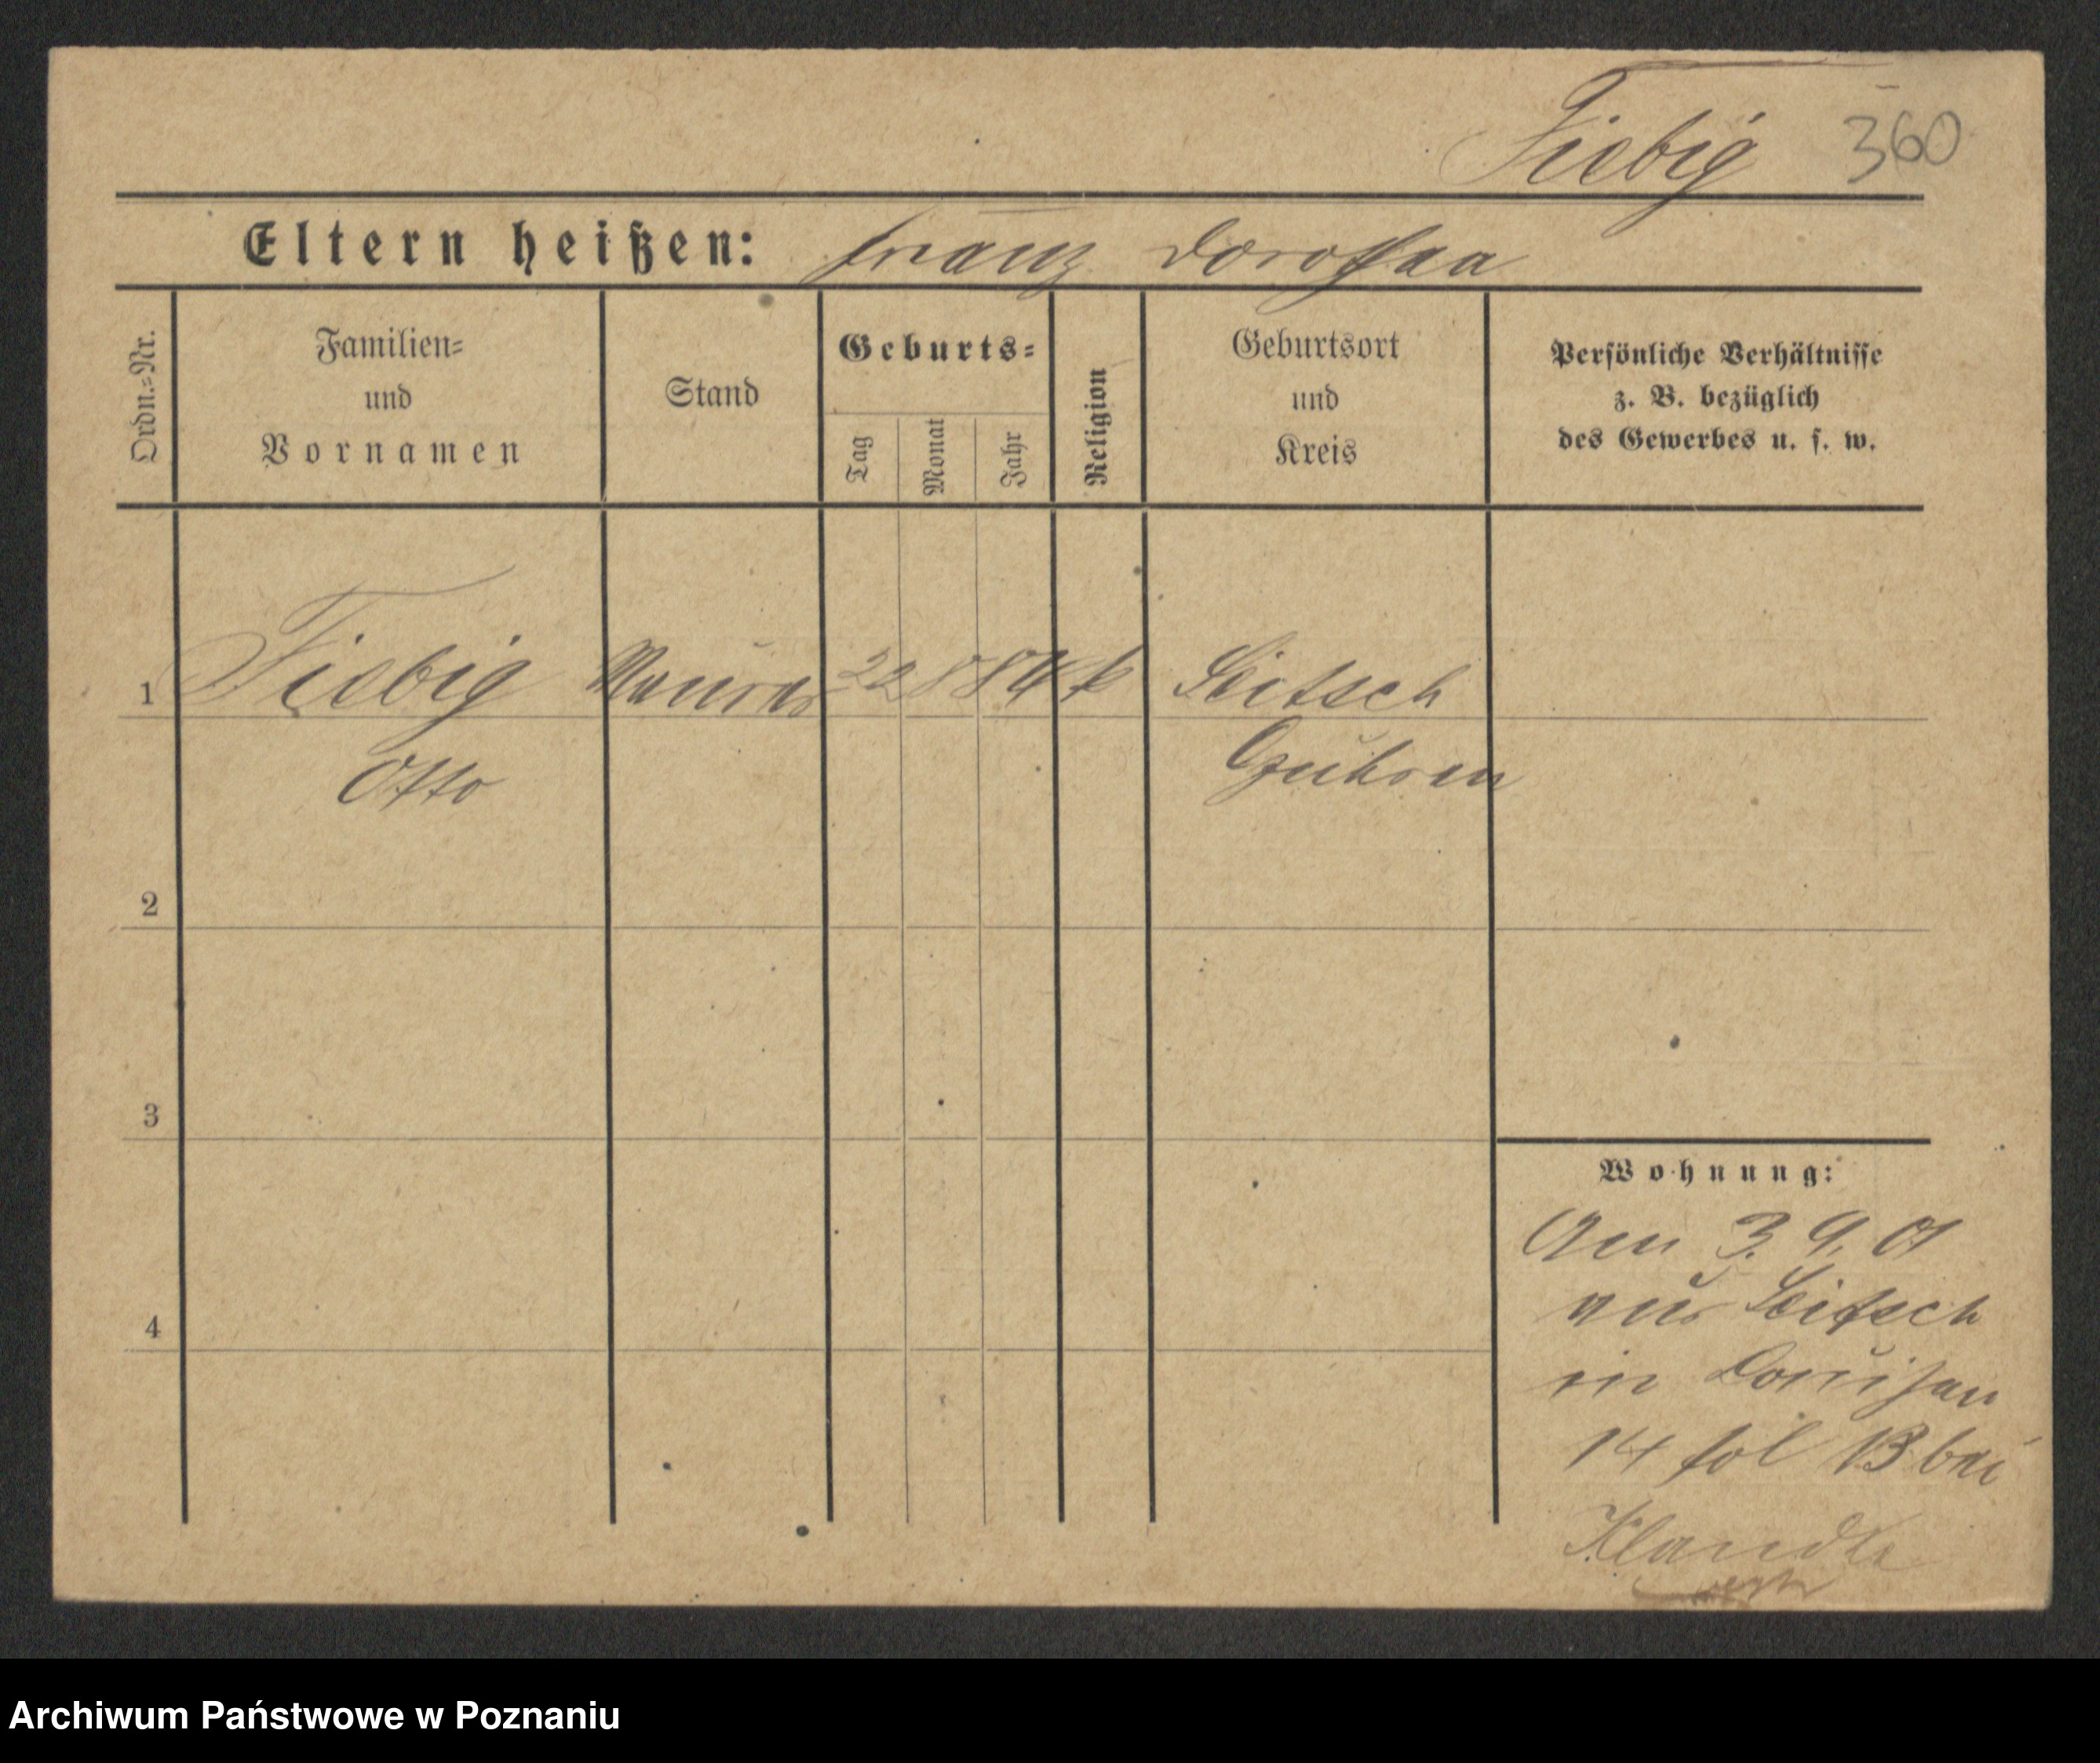 Fiebig 360
Eltern heißen: Franz Dorothea
Ordn.-Nr.
Familien-
und
Vornamen
Stand
Geburts-
Tag
Monat
Jahr
Religion
Geburtsort
und
Kreis
Persönliche Verhältnisse
z. B. bezüglich
des Gewerbes u. s. w.
1 Fiebig Maurer 22 8 84 k Seitsch
Otto Guhrau
2
3
4
Wohnung:
Am 3. 9. 01
aus Seitsch
in Louisen
14 fol 13 bei